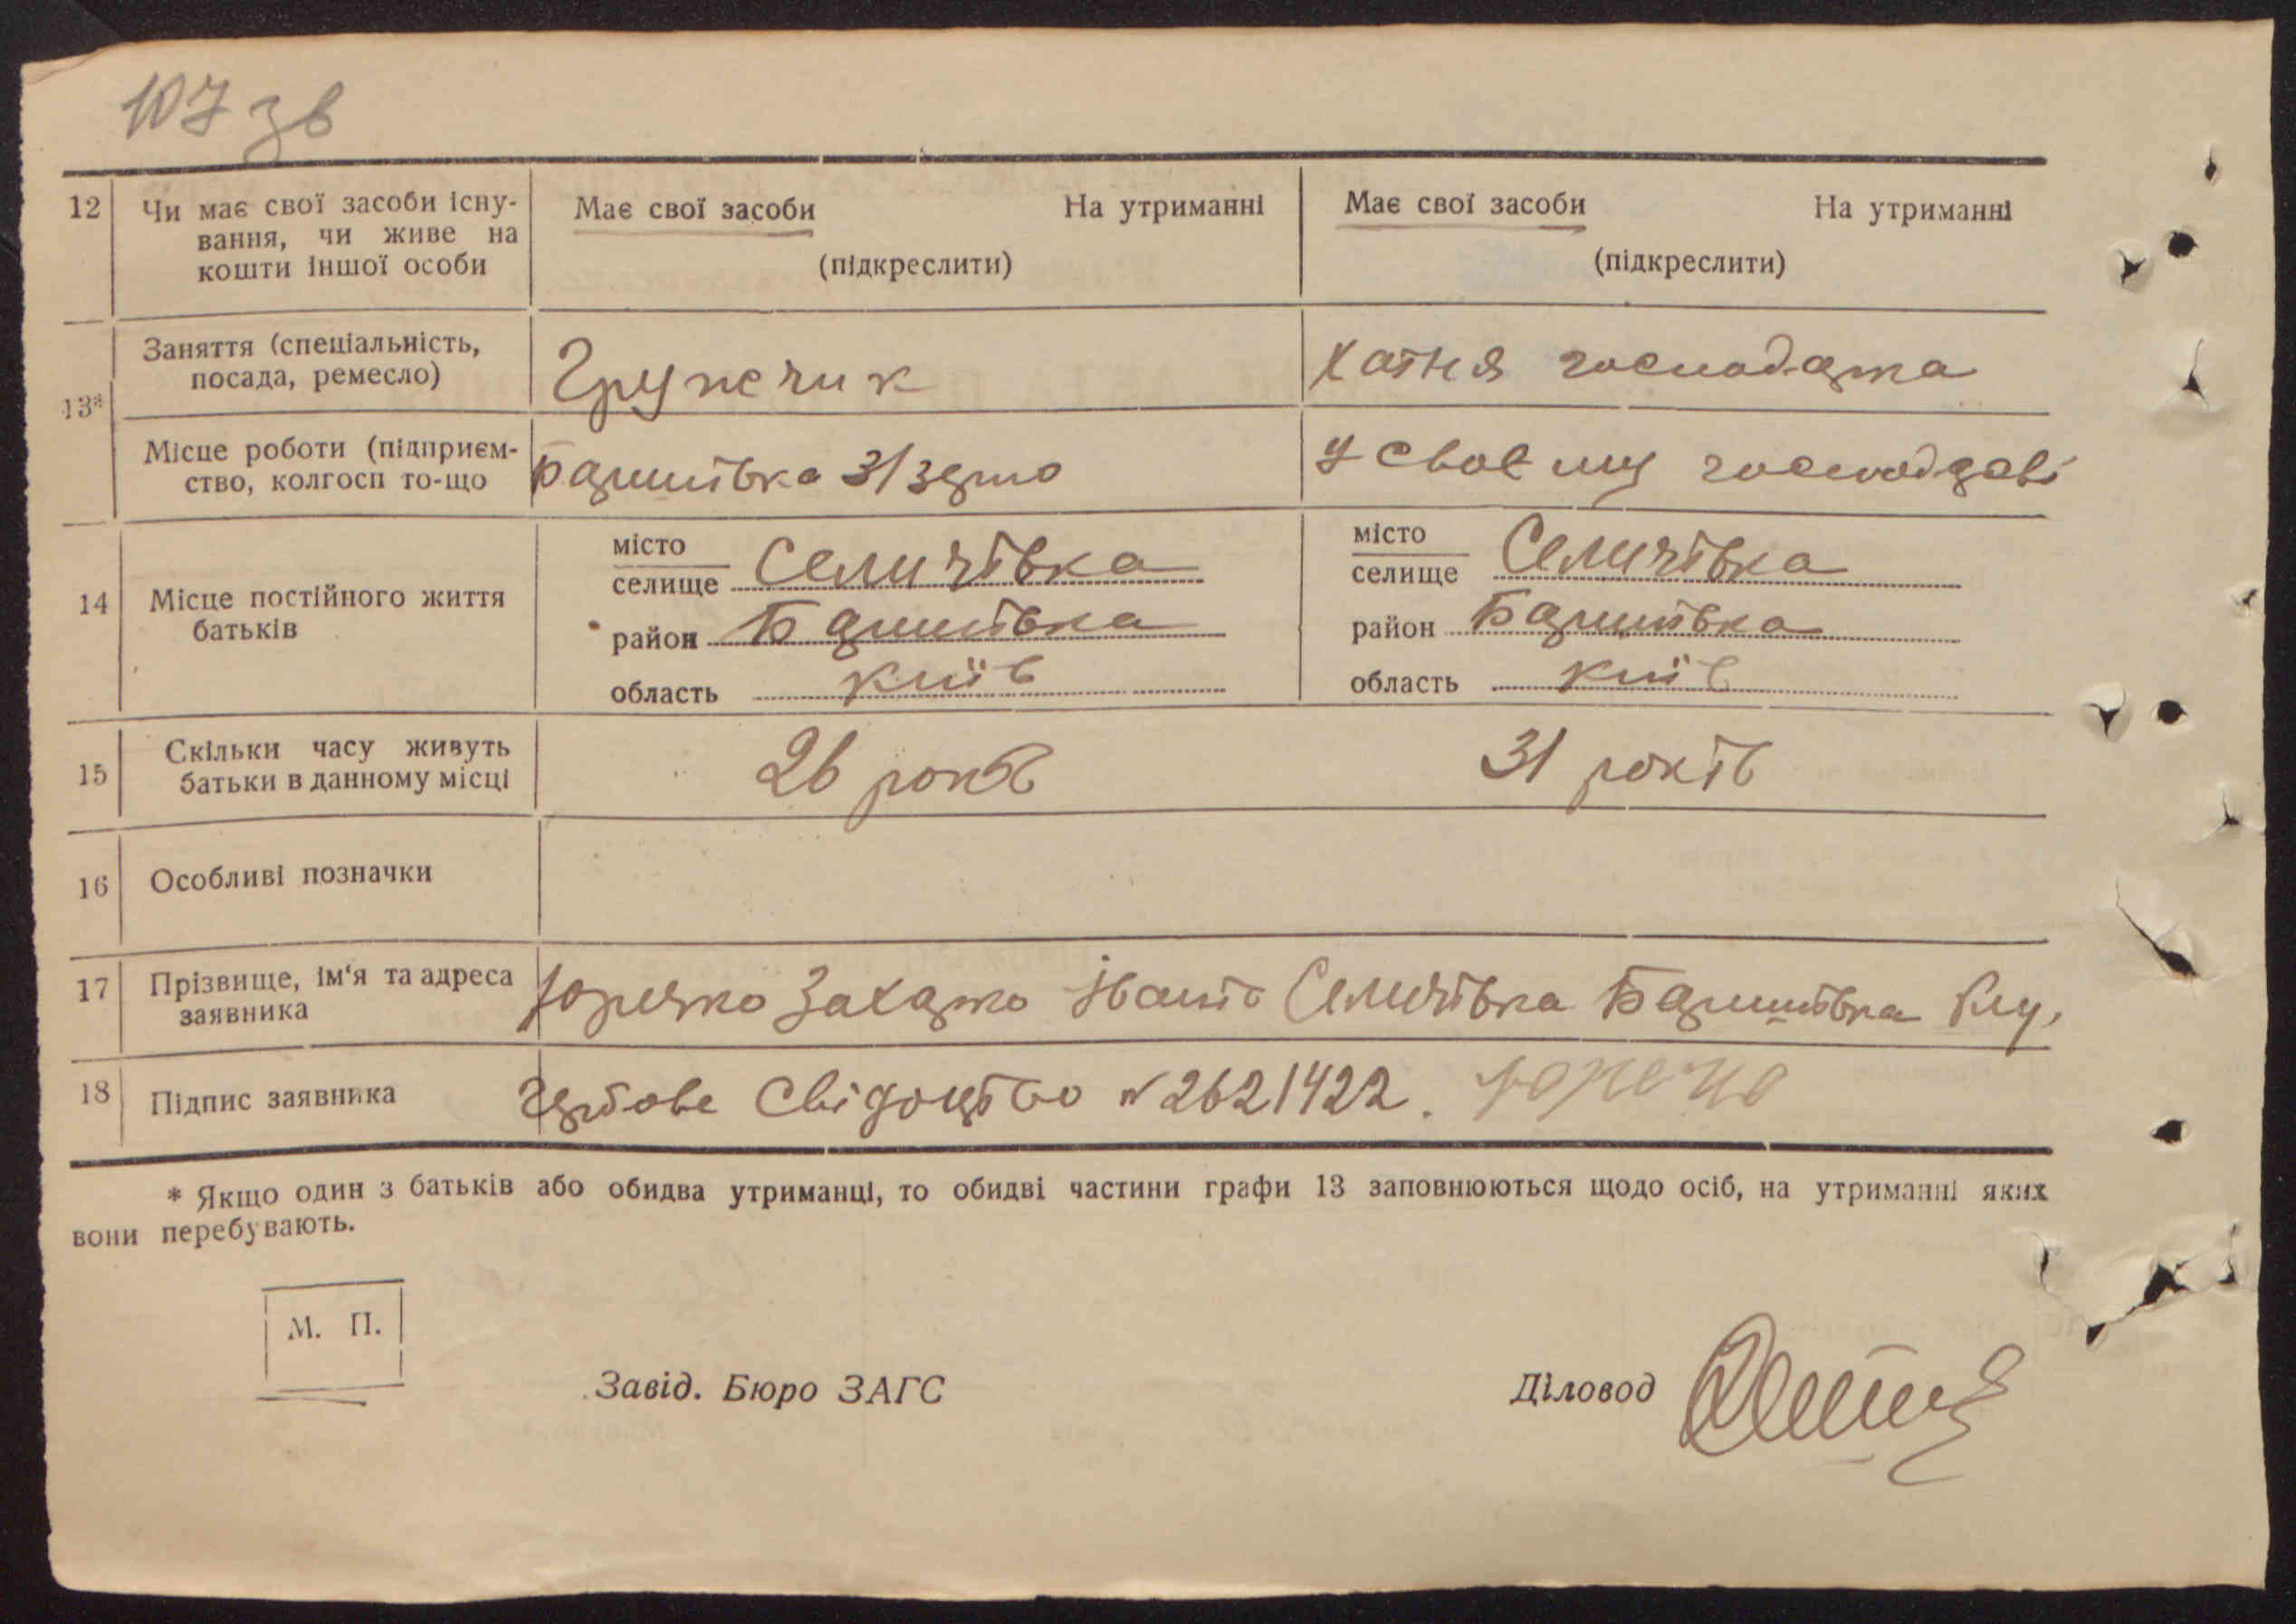 107 зв
12 Чи має свої засоби існу- Має свої засоби На утриманні Має свої засоби На утриманні
вання, чи живе на
кошти іншої особи (підкреслити) (підкреслити)
13* Заняття (спеціальність, Гружчик Хатня господарка
посада, ремесло)
Місце роботи (підприєм- Баришівка У своєму господарві
ство, колгосп то-що
14 Місце постійного життя місто місто
батьків селище Селичівка селище Селичівка
район Баришівка район Баришівка
область Київ область Київ
15 Скільки часу живуть 26 років 31 років
батьки в данному місці
16 Особливі позначки
17 Прізвище, ім'я та адреса Юречко Захарко Іванів Селичівка Баришівка
заявника
18 Підпис заявника Гербове Свідоцтво № 2621422. Юречко
* Якщо один з батьків або обидва утриманці, то обидві частини графи 13 заповнюються щодо осіб, на утриманні яких
вони перебувають.
М. П.
Завід. Бюро ЗАГС Діловод